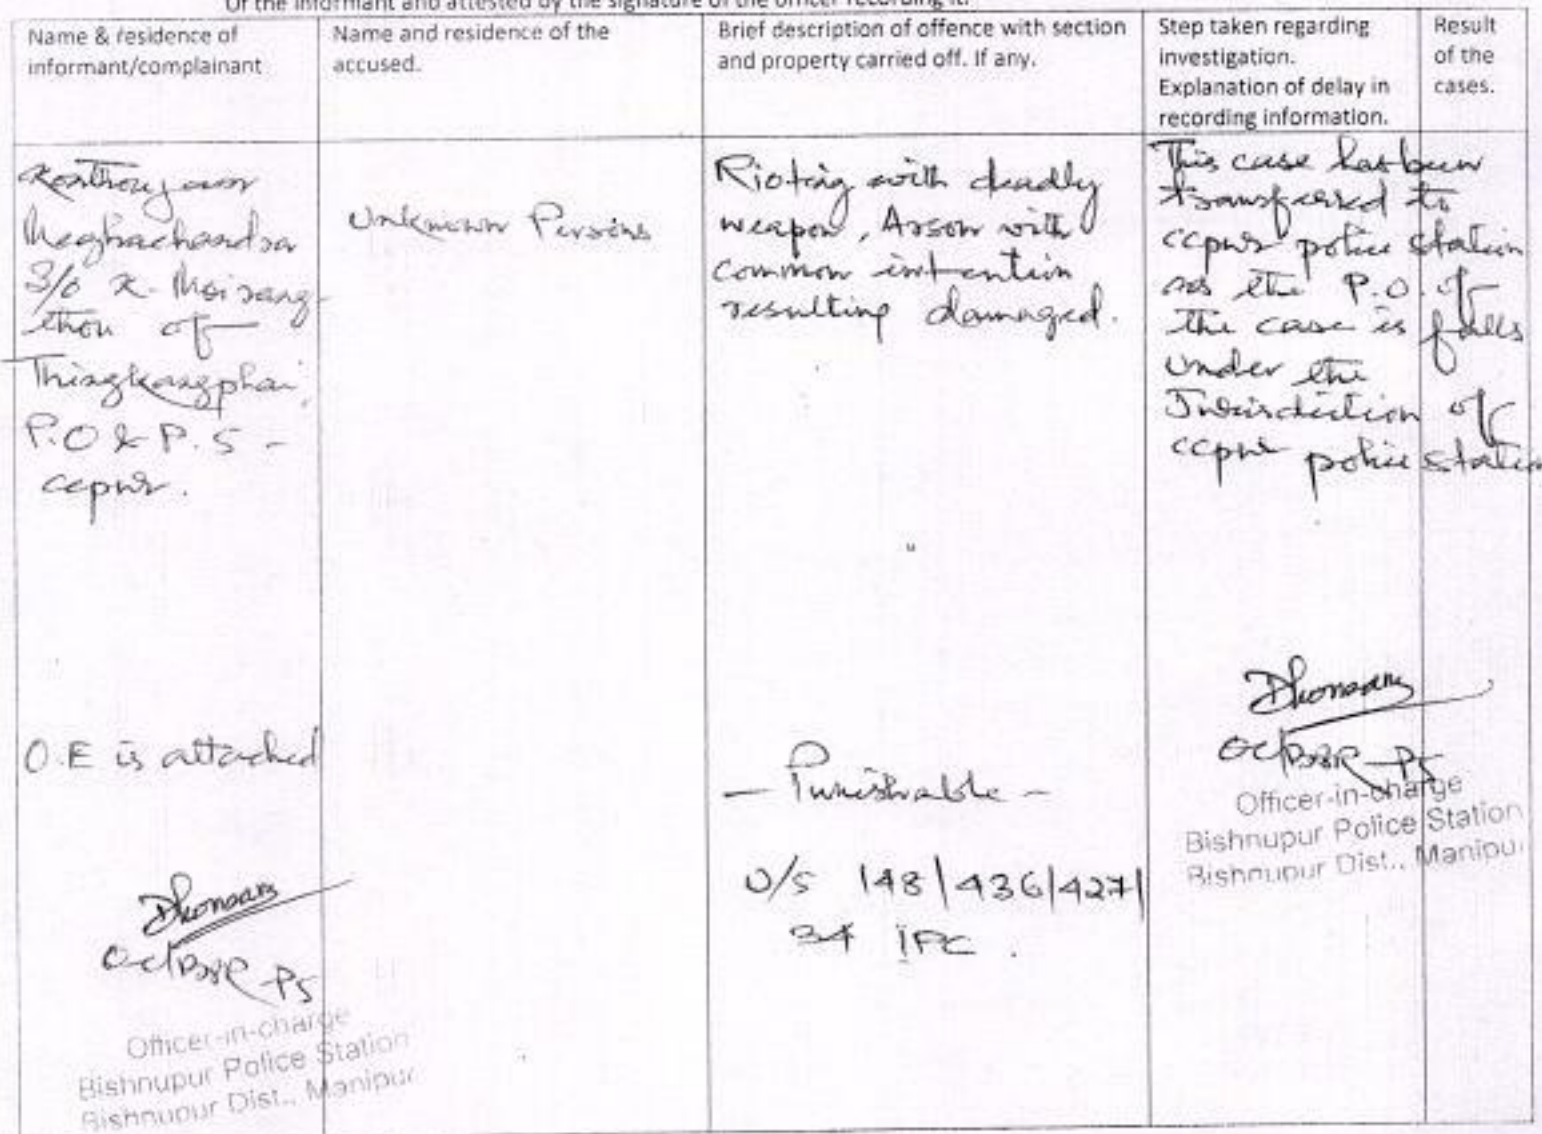 Of the informant and attested by the signature of the officer recording it.
Name & residence of
informant/complainant
Name and residence of the
accused.
Brief description of offence with section
and property carried off. If any.
Step taken regarding
investigation.
Explanation of delay in
recording information.
Result
of the
cases.
Meghachandra
S/o K. Moirang
thou of
Thingkangphai,
P.O & P.S -
ccpur.
O.E is attached
OC/BPR-PS
Officer-in-charge
Bishnupur Police Station
Bishnupur Dist., Manipur
Unknown Persons
Rioting with deadly
weapon, Arson with
common intention
resulting damaged.
- Punishable -
U/S 148/436/427/
34 IPC.
This case has been
transferred to
ccpur police station
as the P.O. of
the case is falls
under the
Jurisdiction of
ccpur police station
OC/BPR-PS
Officer-in-charge
Bishnupur Police Station
Bishnupur Dist., Manipur